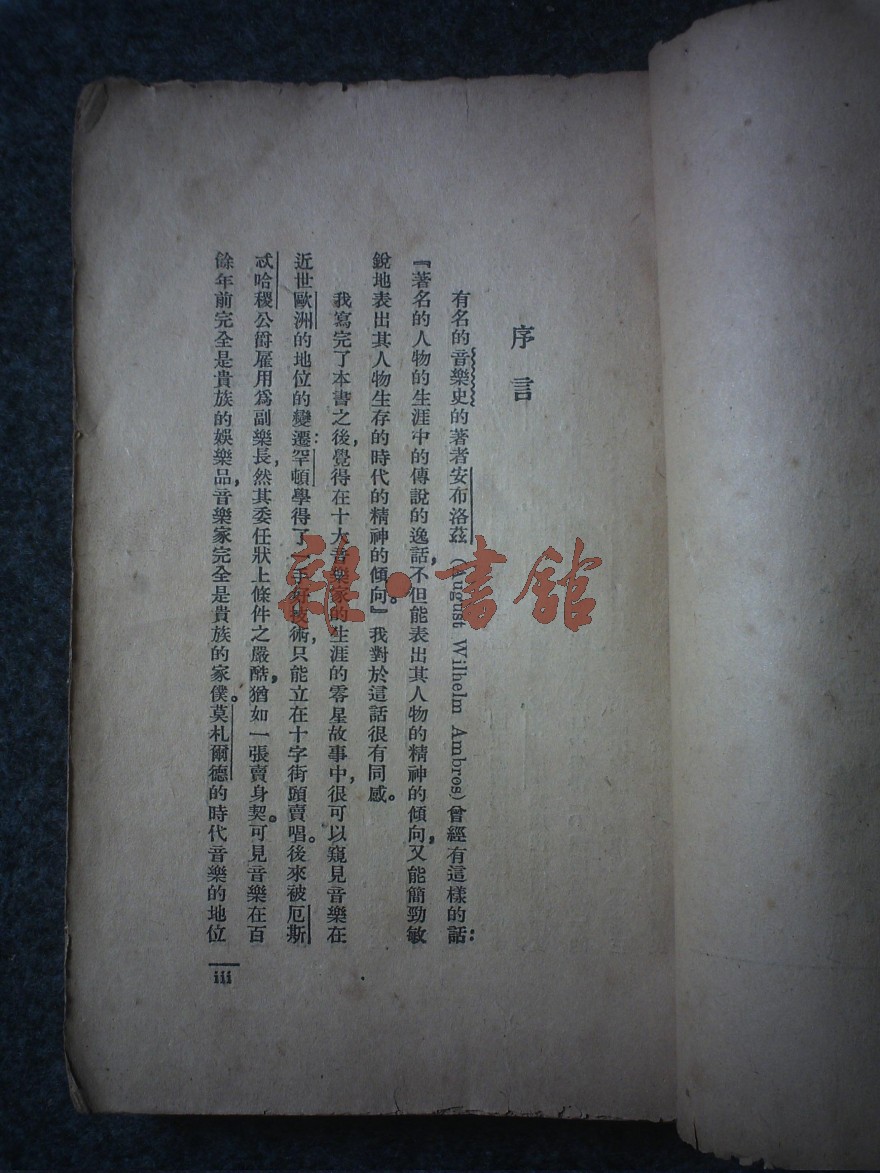 序言
有名的音樂史的著者安布洛茲(August Wilhelm Ambros)曾經有這樣的話:
『著名的人物的生涯中的傳說的逸話,不但能表出其人物的精神的傾向,又能簡勁敏
銳地表出其人物生存的時代的精神的傾向。』我對於這話很有同感。
我寫完了本書之後,覺得在十大音樂家的生涯的零星故事中,很可以窺見音樂在
近世歐洲的地位的變遷:罕頓學得了一手好技術,只能立在十字街頭賣唱。後來被厄斯
忒哈稷公爵雇用爲副樂長,然其委任狀上條件之嚴酷,猶如一張賣身契。可見音樂在百
餘年前完全是貴族的娛樂品,音樂家完全是貴族的家僕。莫札爾德的時代音樂的地位
iii
雜·書館